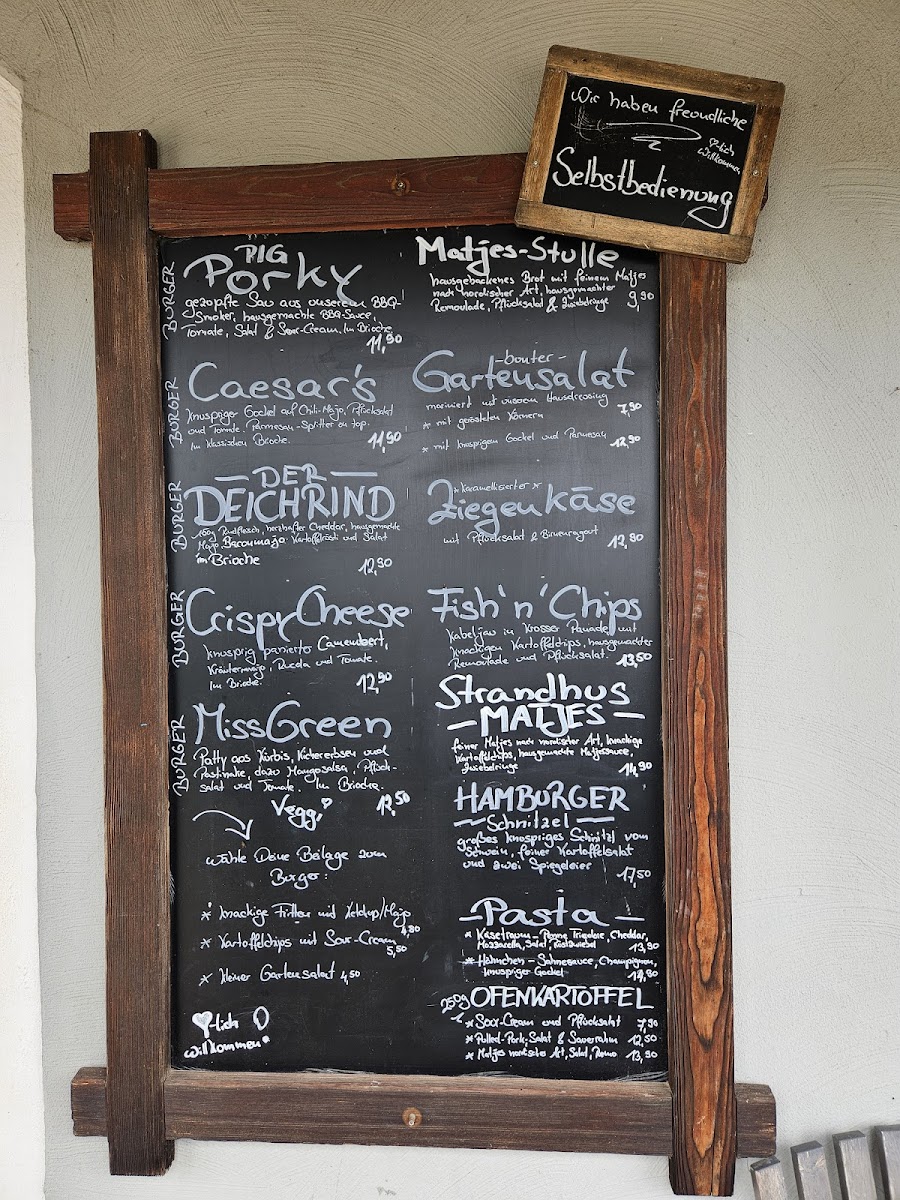 Wir haben freundliche
♡-lich
willkommen
Selbstbedienung
BURGER
PIG
Porky
gezopfte Sau aus unserem BBQ-
Smoker, hausgemachte BBQ-Sauce,
Tomate, Salat & Sour-Cream. Im Brioche
11,90
BURGER
Caesar's
Knuspriger Gockel auf Chili-Majo, Pflücksalat
und Tomate. Parmesan-Splitter on top.
Im klassischen Brioche.
11,90
BURGER
— DER —
DEICHRIND
Rindfleisch, herzhafter Cheddar, hausgemachte
Majo, Baconmajo. Kartoffelrösti und Salat
im Brioche
12,90
BURGER
Crispy Cheese
Knusprig panierter Camembert,
Kräutermajo, Rucola und Tomate.
Im Brioche.
12,90
BURGER
MissGreen
Patty aus Kürbis, Kichererbsen und
Pastinake, dazu Mangosalsa, Pflück-
salat und Tomate. Im Brioche.
12,50
Veggi
Wähle Deine Beilage zum
Burger:
* knackige Fritten mit Ketchup/Majo
4,80
* Kartoffelchips mit Sour-Cream
5,50
* kleiner Gartensalat 4,50
♡-lich
willkommen
Matjes-Stulle
hausgebackenes Brot mit feinem Matjes
nach nordischer Art, hausgemachter
Remoulade, Pflücksalat & Zwiebelringe
9,90
- bunter -
Gartensalat
mariniert mit unserem Hausdressing
7,90
* mit gerösteten Körnern
* mit knusprigem Gockel und Parmesan
12,90
*Karamellisierter*
Ziegenkäse
mit Pflücksalat & Birnenragout
12,90
Fish'n'Chips
Kabeljau in krosser Panade mit
knackigen Kartoffelchips, hausgemachter
Remoulade und Pflücksalat.
13,50
Strandhus
— MATJES —
feiner Matjes nach nordischer Art, knackige
Kartoffelchips, hausgemachte Matjessauce,
Zwiebelringe
14,90
HAMBURGER
Schnitzel
großes knuspriges Schnitzl vom
Schwein, feiner Kartoffelsalat
und zwei Spiegeleier
17,50
— Pasta —
* Käsetraum - Penne Tricolore, Cheddar,
Mozzarella, Salat, Röstzwiebel
13,90
* Hähnchen - Sahnesauce, Champignon,
knuspriger Gockel
14,90
250g OFENKARTOFFEL
* Sour-Cream und Pflücksalat 7,90
* Pulled-Pork, Salat & Sauerrahm 12,50
* Matjes nordische Art, Salat, Remo 13,50